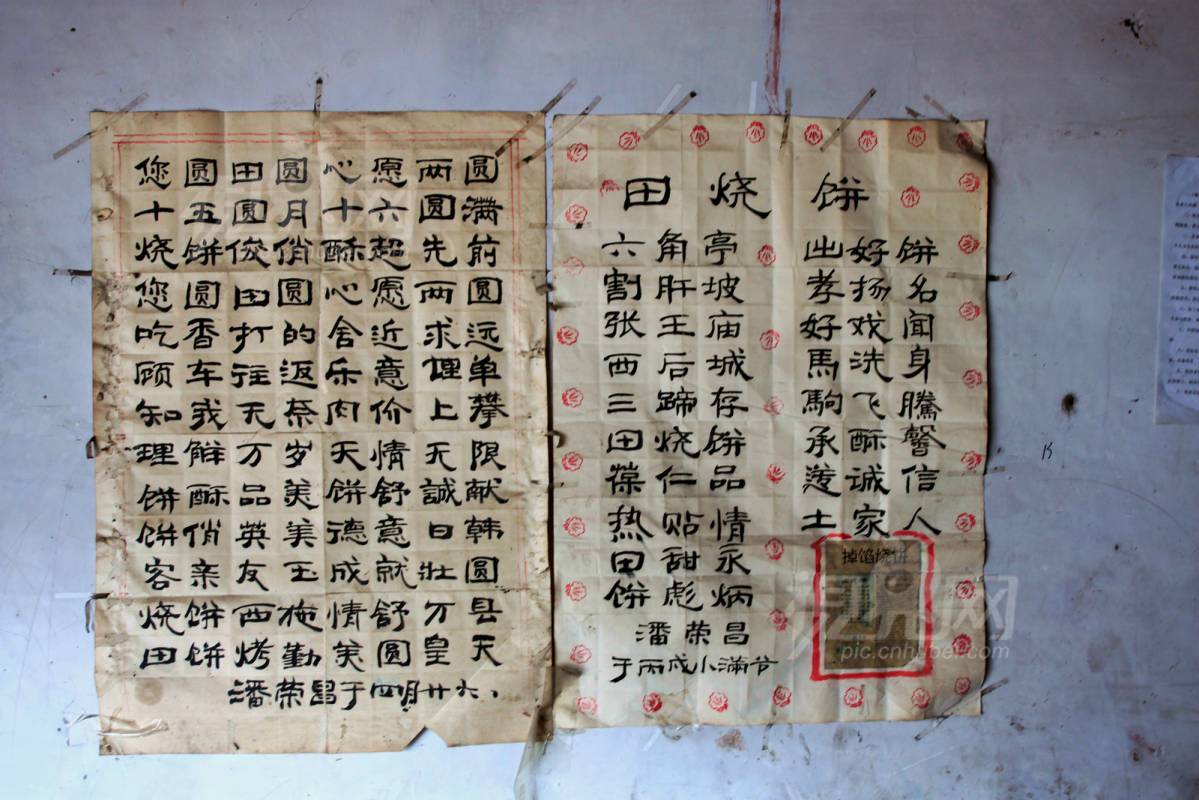 您圆田圆心愿两圆
十五圆月十六圆满
烧饼俊俏酥超先前
您圆田圆心愿两圆
吃香打的舍近求远
顾车往返乐意俚单
知或无奈肉价上攀
理解万岁天情无限
饼酥品美饼舒誠献
饼俏英美德意日韩
客亲友玉成就壮圆
烧饼西施情舒万县
田饼烤勤美圆皇天
潘荣昌于四月廿六、
田烧饼
六角亭出好饼
割肝坡孝扬名
张王庙好戏闻
西后城馬洗身
三蹄存駒飞腾
田烧饼承酥馨
葆仁品诚信
热贴情土家人
田甜永
饼彪炳
潘荣昌
于丙戌小满节
掉馅烧饼
pic.cnhubei.com